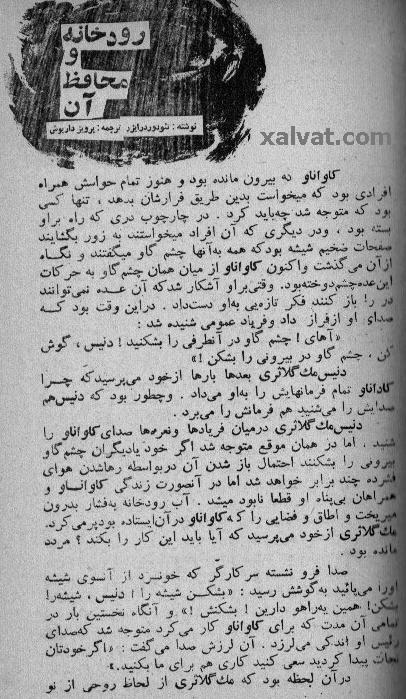 رودخانه
و
محافظ
آن
نوشته : تئودور درایزر ترجمه : پرویز داریوش
xalvat.com
کاواناو که بیرون مانده بود و هنوز تمام حواسش همراه
افرادی بود که میخواست بدین طریق فرارشان بدهد ، تنها کسی
بود که متوجه شد چه‌باید کرد . در چارچوب دری که راه براو
بسته بود ، ودر دیگری که آن افراد میخواستند به زور بگشایند
صفحات ضخیم شیشه بودکه همه به‌آنها چشم گاو میگفتند و نگاه
ازآن می گذشت واکنون کاواناو از میان همان چشم گاو به حرکات
این‌عده‌چشم‌دوخته‌بود. وقتی‌براو آشکار شدکه آن عـده نمی‌توانند
در را باز کنند فکر تازه‌یی به‌او دست‌داد . دراین وقت بود کـه
صدای او ازفراز داد وفریاد عمومی شنیده شد :
«آهای ! چشم گاو در آنطرفی را بشکنید ! دنیس ، گوش
کن ، چشم گاو در بیرونی را بشکن !»
دنیس‌مک‌گلاثری بعدها بارها ازخود می‌پرسیدکه چـرا
کاداناو تمام فرمانهایش را به‌او می‌داد . وچطور بود که دنیس‌هم
صدایش را می‌شنید هم فرمانش را می‌برد .
دنیس‌مک‌گلاثری درمیان فریادها ونعره‌ها صدای‌کاواناو را
شنید . اما در همان موقع متوجه شد اگر خود یادیگران چشم‌گاو
بیرونی را بشکنند احتمال باز شدن آن دربواسطه رهاشدن هوای
فشرده چند برابر خواهد شد اما در آنصورت زندگی کاوانـاو و
همراهان بی‌پناه او قطعا نابود میشد . آب رودخانه به‌فشار بدرون
میریخت و اطاق و فضایی را که کاواناو درآن‌ایستاده بودپرمی‌کرد.
مک‌گلاثری ازخود می‌پرسید که آیا باید این کار را بکند ؟ مردد
مانده بود .
صدا فرو نشسته سرکارگر که خونسرد از آنسوی شیشه
اورا می‌پائید به‌گوشش رسید : «بشکـن شیشه را ! دنیس ، شیشه‌را
بشکن! همین یه‌راهو دارین ! بشکنش !» و آنگاه نخستین بار در
تمامی آن مدت که برای کاواناو کار می‌کرد متوجه شد که‌صدای
رئیس او اندکی می‌لرزد . آن لرزش صدا می‌گفت : «اگرخودتان
نجات پیدا کردید سعی کنید کاری هم برای ما بکنید.»
درآن لحظه بود که مک‌گلاثری از لحاظ روحی از نو